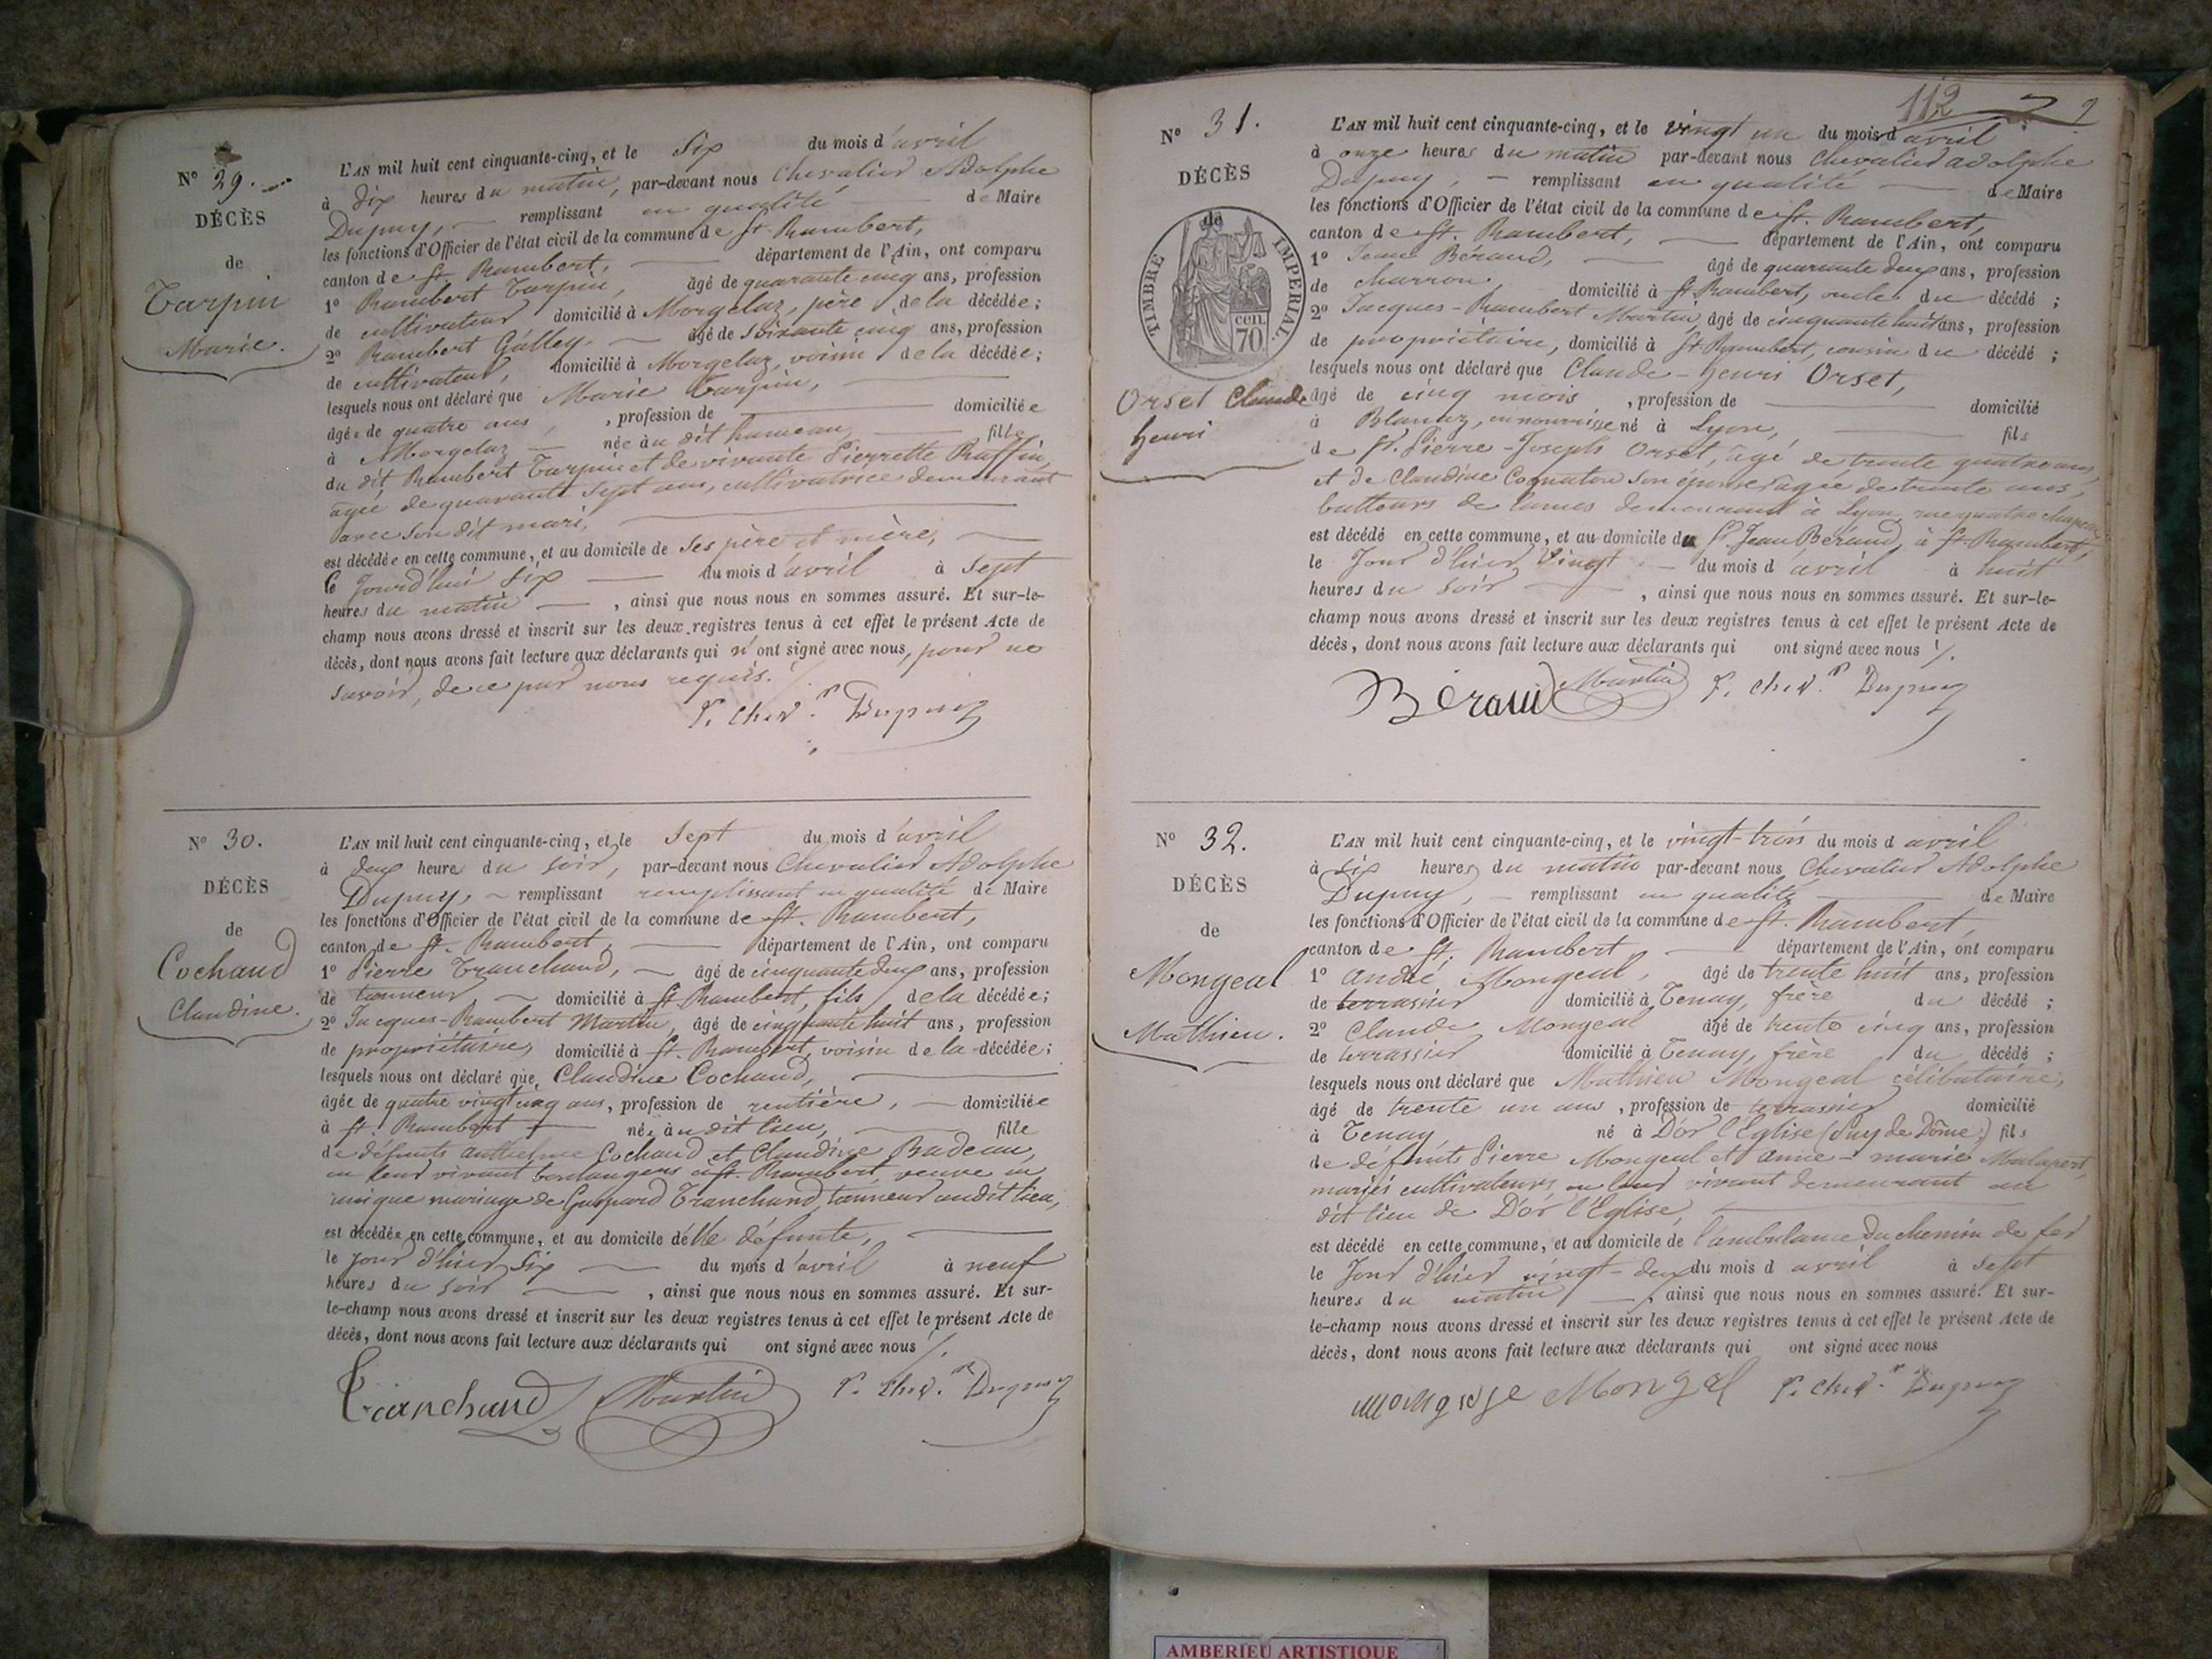 N° 29.
DÉCÈS
de
Tarpin
Marie.
L'AN mil huit cent cinquante-cinq, et le Six du mois d'avril
à dix heures du matin, par-devant nous Chevalier Adolphe
Dupuy, remplissant en qualité de Maire
les fonctions d'Officier de l'état civil de la commune de St. Rambert,
canton de St. Rambert, département de l'Ain, ont comparu
1° Rambert Tarpin, âgé de quarante cinq ans, profession
de cultivateur domicilié à Morgelaz, père de la décédée;
2° Rambert Gálley, âgé de soixante cinq ans, profession
de cultivateur, domicilié à Morgelaz, voisin de la décédée;
lesquels nous ont déclaré que Marie Tarpin,
âgée de quatre ans, profession de domiciliée
à Morgelaz née au dit hameau, fille
du dit Rambert Tarpin et de vivante Pierrette Ruffin,
agée de quarante sept ans, cultivatrice demeurant
avec son dit mari,
est décédée en cette commune, et au domicile de ses père et mère,
le Jourd'hui six du mois d'avril à sept
heures du matin, ainsi que nous nous en sommes assuré. Et sur-le-
champ nous avons dressé et inscrit sur les deux registres tenus à cet effet le présent Acte de
décès, dont nous avons fait lecture aux déclarants qui n'ont signé avec nous, pour ne
savoir, de ce par nous requis.
Chev.r Dupuy
N° 30.
DÉCÈS
de
Cochaud
Claudine.
L'AN mil huit cent cinquante-cinq, et le Sept du mois d'avril
à deux heure du soir, par-devant nous Chevalier Adolphe
Dupuy, remplissant remplissant en qualité de Maire
les fonctions d'Officier de l'état civil de la commune de St. Rambert,
canton de St. Rambert, département de l'Ain, ont comparu
1° Pierre Tranchand, âgé de cinquante deux ans, profession
de tanneur domicilié à St Rambert, fils de la décédée;
2° Jacques-Rambert Martin, âgé de cinquante huit ans, profession
de propriétaire, domicilié à St. Rambert, voisin de la décédée;
lesquels nous ont déclaré que Claudine Cochaud,
âgée de quatre vingt cinq ans, profession de rentière, domiciliée
à St. Rambert née au dit lieu, fille
de défunts Anthelme Cochaud et Claudine Badeau,
en leur vivant boulangers à St. Rambert, veuve en
unique mariage de Gaspard Tranchand, tanneur audit lieu,
est décédée en cette commune, et au domicile d'elle défunte,
le jour d'hier six du mois d'avril à neuf
heures du soir, ainsi que nous nous en sommes assuré. Et sur-
le-champ nous avons dressé et inscrit sur les deux registres tenus à cet effet le présent Acte de
décès, dont nous avons fait lecture aux déclarants qui ont signé avec nous
Tranchand Martin Chev.r Dupuy
112
N° 31.
DÉCÈS
de
TIMBRE IMPERIAL.
70 cen.
Orset Claude
henri
L'AN mil huit cent cinquante-cinq, et le vingt un du mois d'avril
à onze heures du matin par-devant nous Chevalier adolphe
Dupuy, remplissant en qualité de Maire
les fonctions d'Officier de l'état civil de la commune de St. Rambert,
canton de St. Rambert, département de l'Ain, ont comparu
1° Jean Béraud, âgé de quarante deux ans, profession
de charron domicilié à St Rambert, oncle du décédé;
2° Jacques-Rambert Martin, âgé de cinquante huit ans, profession
de propriétaire, domicilié à St Rambert, cousin du décédé;
lesquels nous ont déclaré que Claude-henri Orset,
âgé de cinq mois, profession de domicilié
à Blanaz, en nourrisse né à Lyon, fils
de Sr. Pierre-Joseph Orset, âgé de trente quatre ans,
et de Claudine son épouse agée de trente ans,
batteurs de lames demeurant à Lyon, rue quatre chapeaux
est décédé en cette commune, et au domicile du Sr. Jean Béraud, à St. Rambert,
le Jour d'hier Vingt du mois d'avril à huit
heures du soir, ainsi que nous nous en sommes assuré. Et sur-le-
champ nous avons dressé et inscrit sur les deux registres tenus à cet effet le présent Acte de
décès, dont nous avons fait lecture aux déclarants qui ont signé avec nous
Béraud Martin Chev.r Dupuy
N° 32.
DÉCÈS
de
Mongeal
Mathieu.
L'AN mil huit cent cinquante-cinq, et le vingt-trois du mois d avril
à six heures du matin par-devant nous Chevalier Adolphe
Dupuy, remplissant en qualité de Maire
les fonctions d'Officier de l'état civil de la commune de St. Rambert,
canton de St. Rambert département de l'Ain, ont comparu
1° André Mongeal, âgé de trente huit ans, profession
de terrassier domicilié à Tenay, frère du décédé;
2° Claude Mongeal âgé de trente cinq ans, profession
de terrassier domicilié à Tenay, frère du décédé;
lesquels nous ont déclaré que Mathieu Mongeal célibataire,
âgé de trente un ans, profession de terrassier domicilié
à Tenay, né à D'or l'Eglise (Puy de Dôme) fils
de défunts Pierre Mongeal et anne-marie Malapert,
mariés cultivateurs en leur vivant demeurant au
dit lieu de D'or l'Eglise,
est décédé en cette commune, et au domicile de l'ambulance du chemin de fer
le Jour d'hier vingt-deux du mois d avril à sept
heures du matin, ainsi que nous nous en sommes assuré. Et sur-
le-champ nous avons dressé et inscrit sur les deux registres tenus à cet effet le présent Acte de
décès, dont nous avons fait lecture aux déclarants qui ont signé avec nous
Mongal Chev.r Dupuy
AMBERIEU ARTISTIQUE